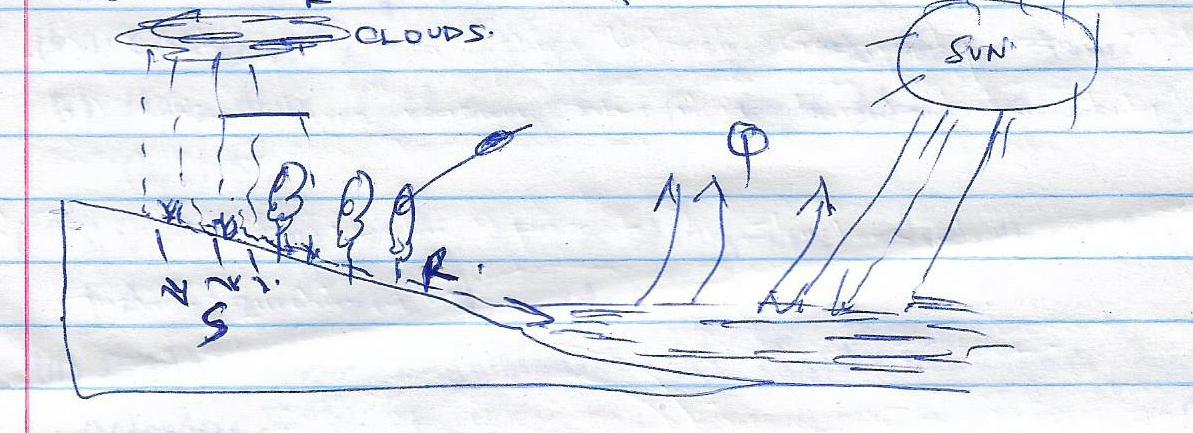 CLOUDS.
SUN
φ
R.
S